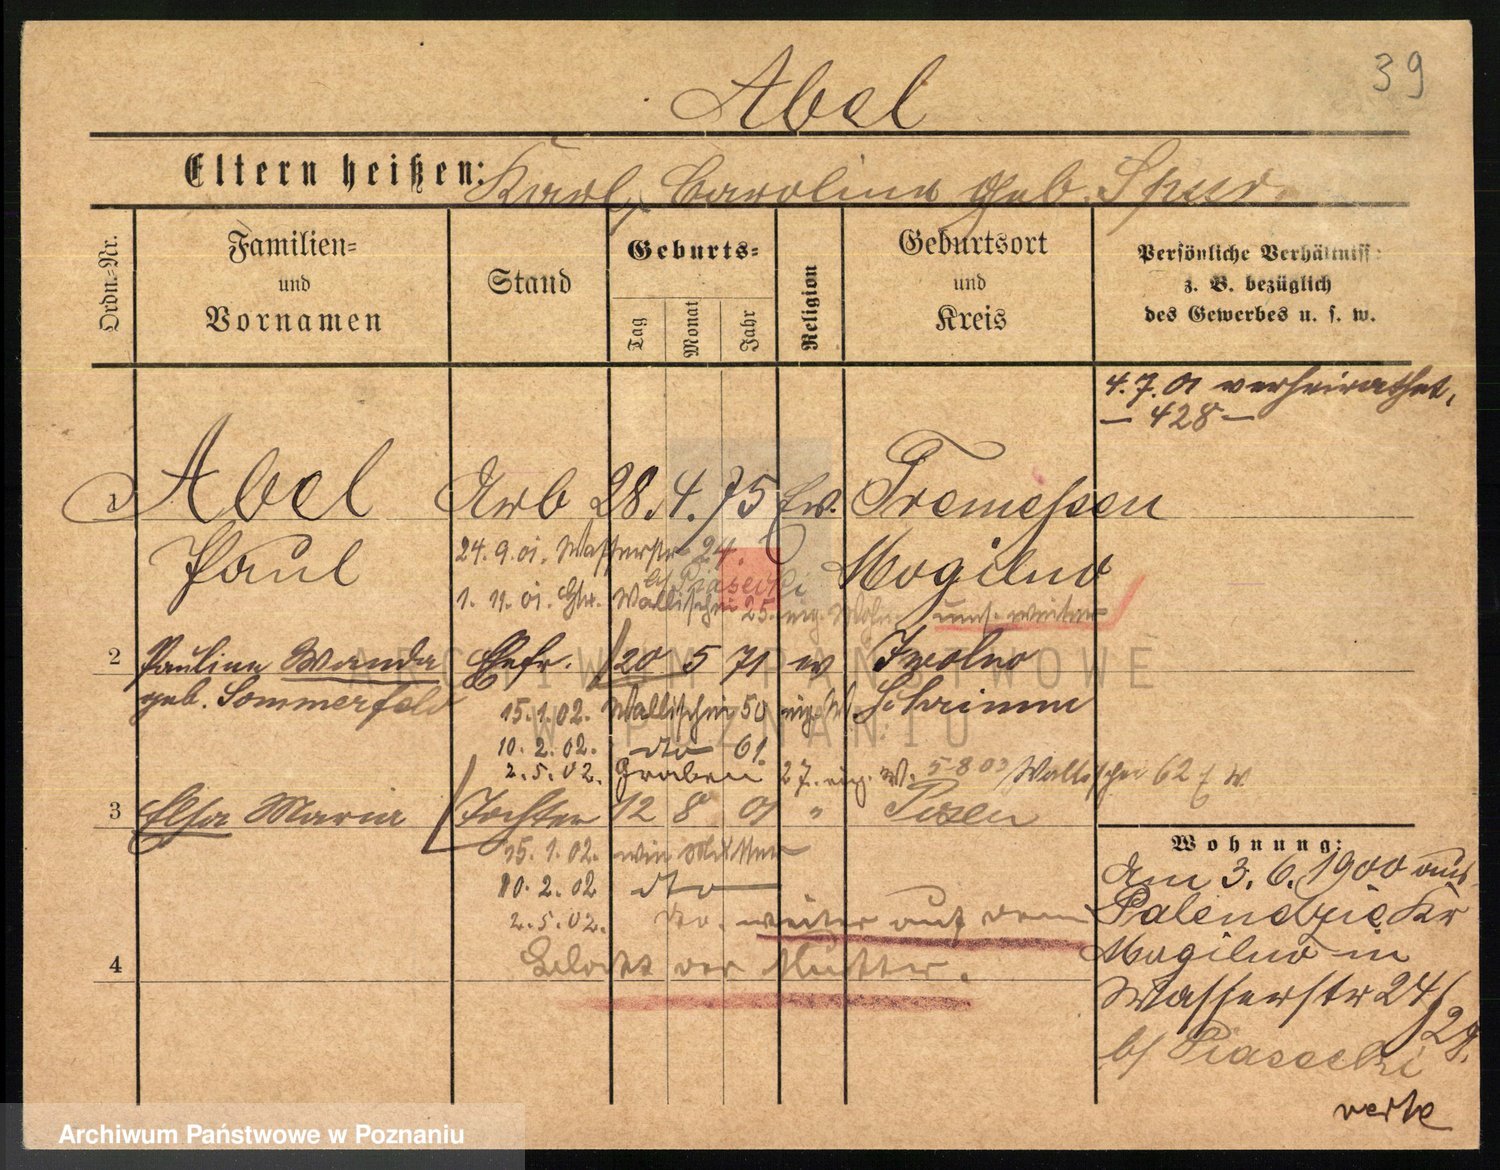 39
Abel
Eltern heißen: Karl, Carolina geb. Spur
Ordn.-Nr.
Familien-
und
Vornamen
Stand
Geburts-
Tag
Monat
Jahr
Religion
Geburtsort
und
Kreis
Persönliche Verhältniss
z. B. bezüglich
des Gewerbes u. s. w.
4.7.01 verheirathet,
— 428 —
1 Abel Arb 28. 4. 75 Ev. Tremessen
Paul Mogilno
24.9.01. Wasserstr 24.
b/ Piasecki
1. 11. 01. Wallischei 25. eig. Wohn.
2 Pauline Wanda Ehefr. 20 5 71 ev
geb. Sommerfeld Schrimm
15.1.02. Wallischei 50 eig. W.
10. 2. 02. dto 61.
2. 5. 02. Graben 27. eig. W. 5 8 03 Wallischei 62 W
3 Elsa Maria Tochter 12 8 01 " Posen
15. 1. 02. wie Mutter
10. 2. 02 dto
2. 5. 02. do. weiter auf dem
der Mutter.
4
Wohnung:
Am 3. 6. 1900 aus
Palendzie Kr
Mogilno in
Wasserstr 24/29.
b/ Piasecki
ARCHIWUM PAŃSTWOWE
W POZNANIU
Archiwum Państwowe w Poznaniu